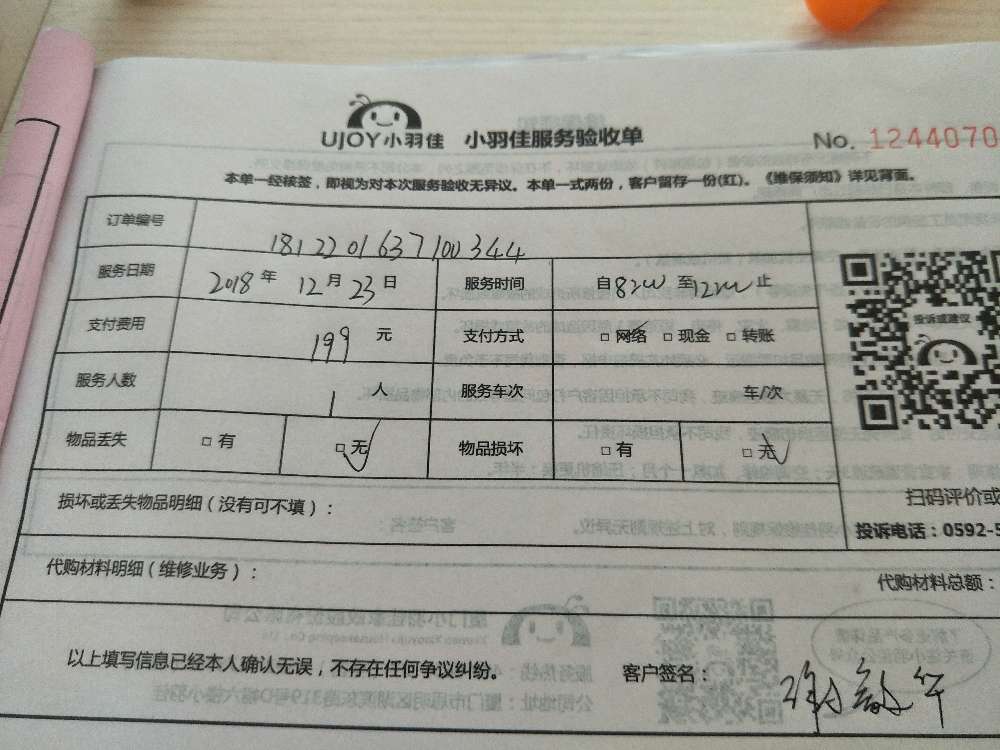 UJOY小羽佳 小羽佳服务验收单 No. 1244070
本单一经核签，即视为对本次服务验收无异议。本单一式两份，客户留存一份(红)。《维保须知》详见背面。
订单编号 181220163710 0344
服务日期 2018 年 12 月 23 日 服务时间 自 8:00 至 12:00 止
支付费用 199 元 支付方式 □ 网络 □ 现金 □ 转账
投诉或建议
服务人数 1 人 服务车次 车/次
物品丢失 □ 有 □ 无 物品损坏 □ 有 □ 无
损坏或丢失物品明细（没有可不填）：
扫码评价或
投诉电话：0592-5
代购材料明细（维修业务）：
代购材料总额：
以上填写信息已经本人确认无误，不存在任何争议纠纷。
客户签名：